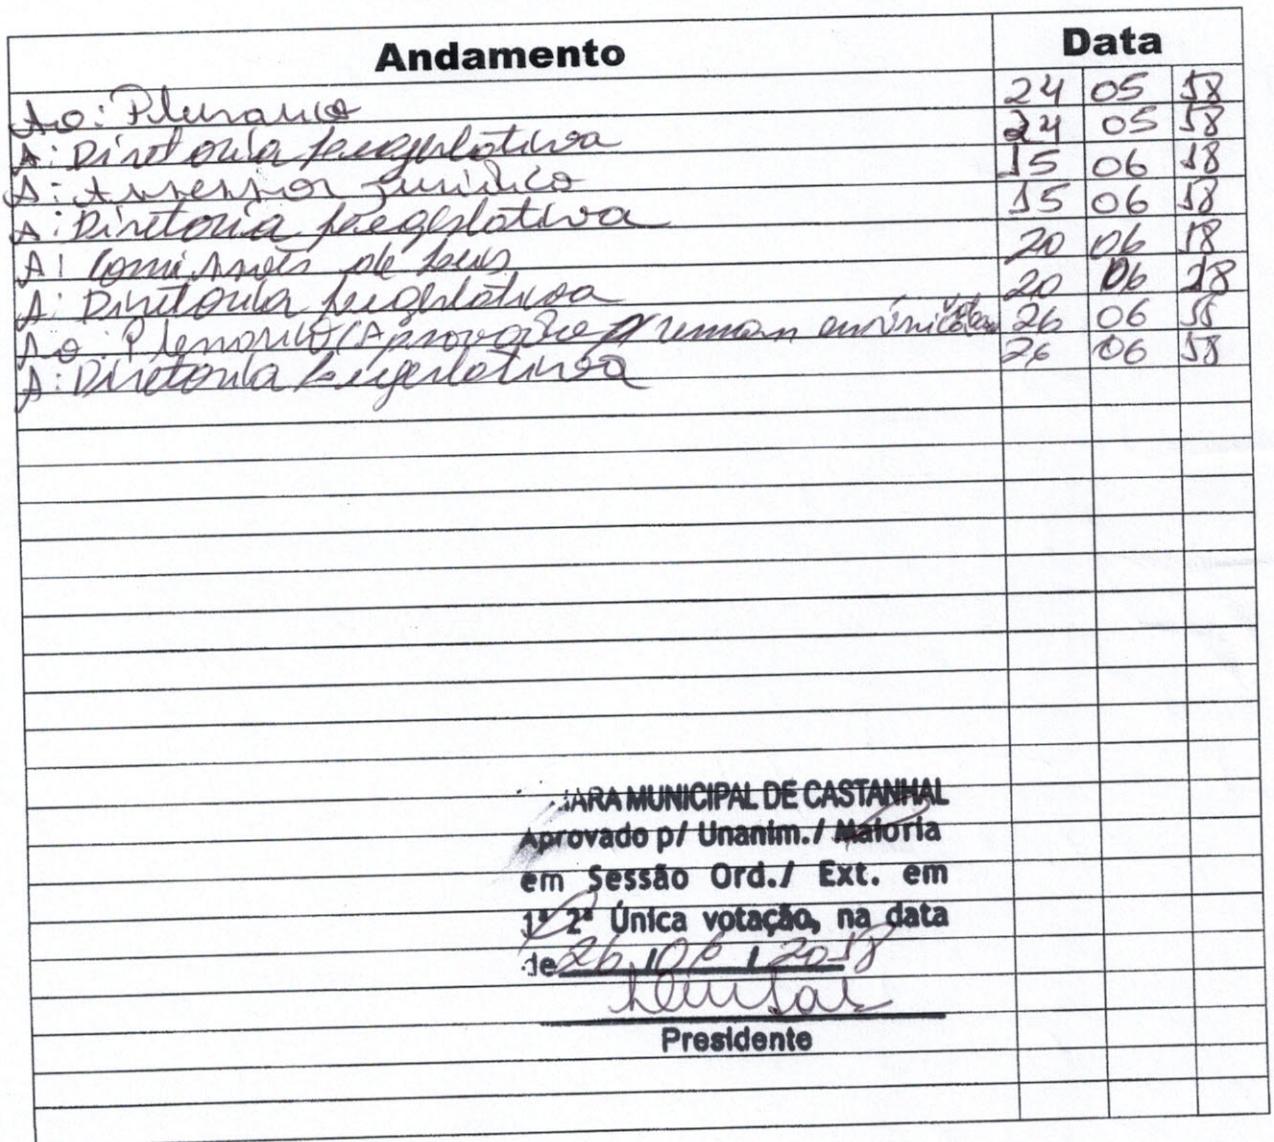 Andamento Data
Ao: Plenario 24 05 18
A: Diretoria Legeslativa 24 05 18
A: Assessor Juridico 15 06 18
A: Diretoria Legeslativa 15 06 18
A: Comissões de Leis 20 06 18
A: Diretoria Legeslativa 20 06 18
Ao: Plenario (Aprovação 26 06 18
A: Diretoria Legeslativa 26 06 18
ARA MUNICIPAL DE CASTANHAL
Aprovado p/ Unanim./ Maioria
em Sessão Ord./ Ext. em
1ª 2ª Única votação, na data
de 26 / 06 / 2018
Presidente